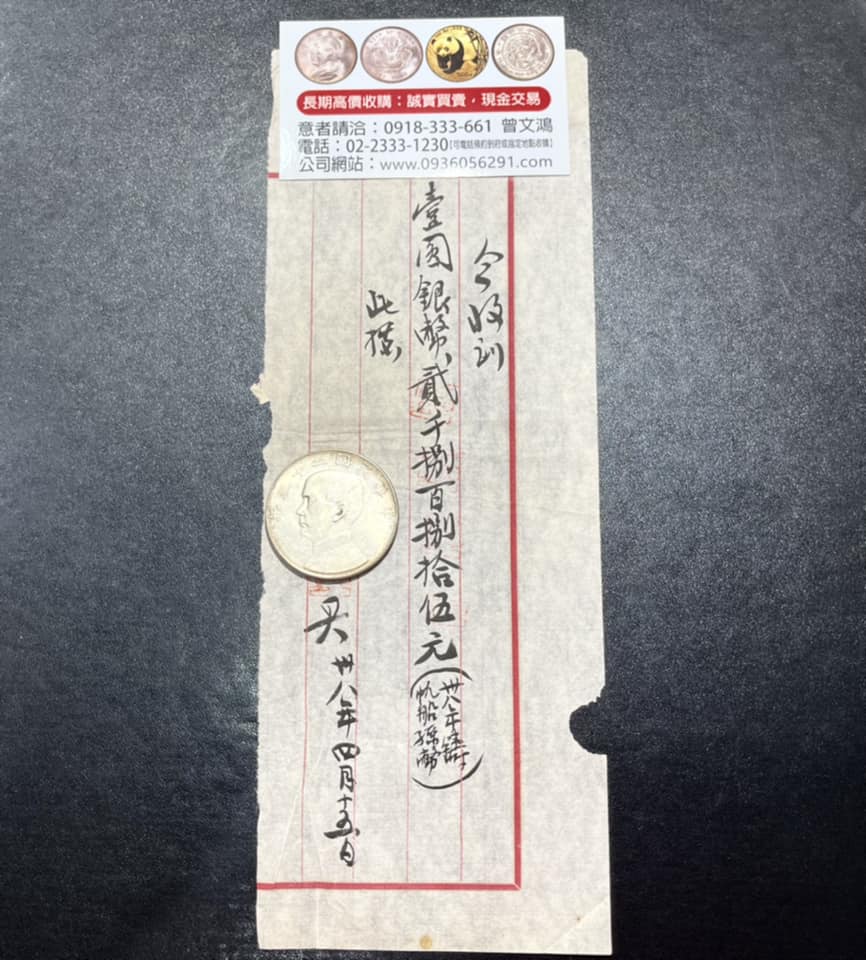 長期高價收購：誠實買賣，現金交易
意者請洽：0918-333-661 曾文鴻
電話：02-2333-1230【可電話預約到府或指定地點收購】
公司網站：www.0936056291.com
今收到
壹圓銀幣貳千捌百捌拾伍元
卅八年鑄
帆船孫幣
此據
卅八年四月十五日